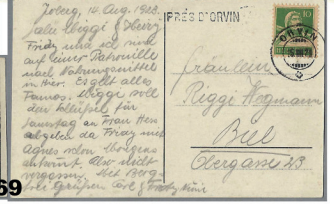 Joberg, 14. Aug. 1923.
Liebe Miggi & Heiry
Fridy und ich sind
auf einer Patrouille
nach Nahrungsmittel
in hier. Es geht alles
Famos. Miggi soll
den Schlüssel für
Samstag an Frau Hess
abgeben da Fridy mit
Agnes schon Morgens
antwort. Also nicht
vergessen. Mit Berg-
Grüssen
PRÈS D'ORVIN
10
ORVIN
Fräulein
Wegmann
Biel
Obergasse 23
69